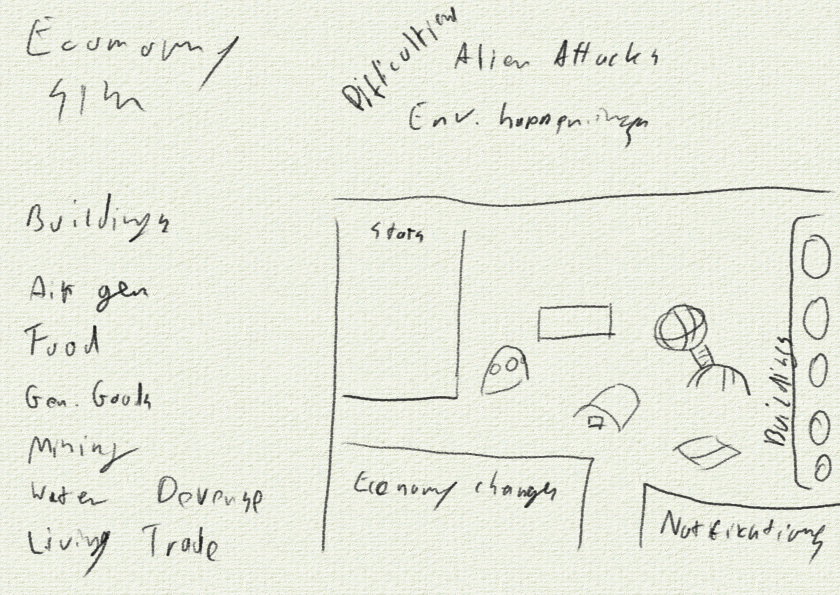 Economy
Sim
Difficulties
Alien Attacks
Env. happenings
Buildings
Air gen
Food
Gen. Goods
Mining
Water Devense
Living Trade
Stats
Buildings
Economy changes
Notifikations